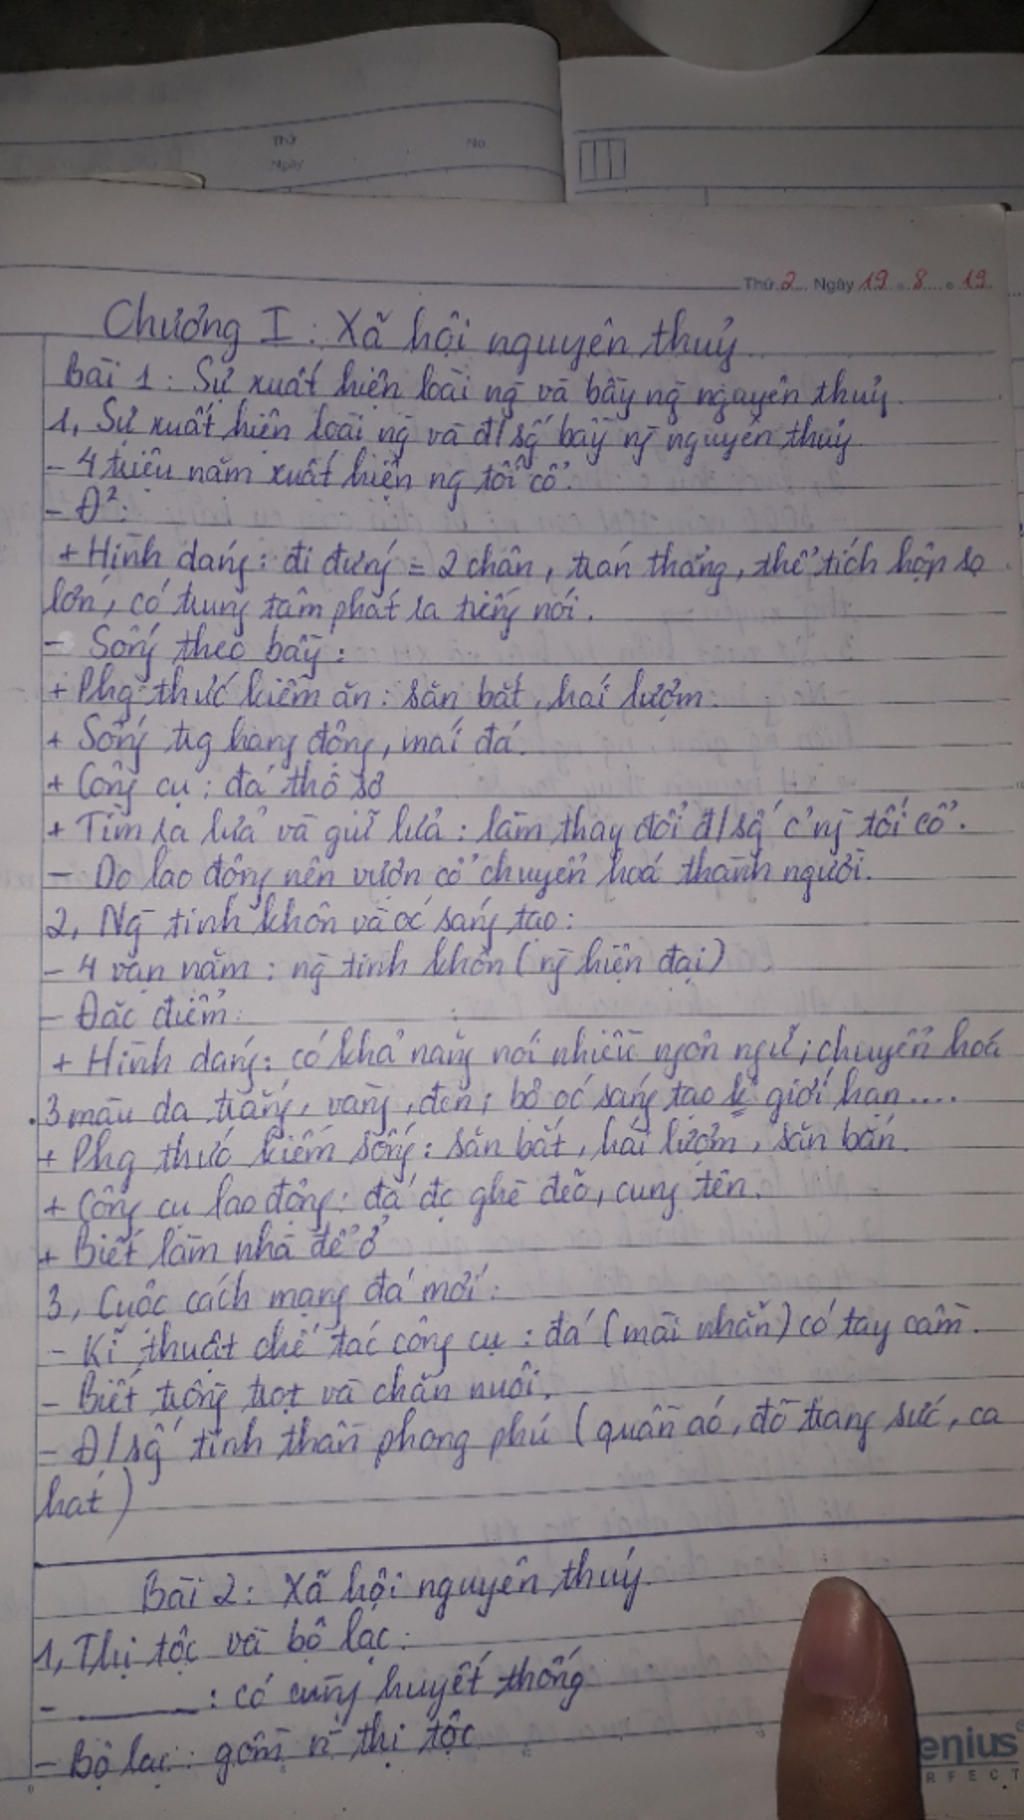 Thứ
No
Ngày
Thứ 2 Ngày 19.8.19
Chương I: Xã hội nguyên thuỷ
Bài 1: Sự xuất hiện loài ng̀ và bầy ng̀ nguyên thuỷ.
1, Sự xuất hiện loài ng̀ và đ/sg̀́ bầy ng̀ nguyên thuỷ
- 4 triệu năm xuất hiện ng tối cổ.
- Đ²:
+ Hình dáng: đi đứng = 2 chân, trán thẳng, thể tích hộp sọ
lớn, có trung tâm phát ra tiếng nói.
- Sống theo bầy:
+ Phg thức kiếm ăn: săn bắt, hái lượm.
+ Sống trg hang động, mái đá.
+ Công cụ: đá thô sơ
+ Tìm ra lửa và giữ lửa: làm thay đổi đ/sg̀́ c' ng̀ tối cổ.
- Do lao động nên vượn cổ chuyển hoá thành người.
2, Ng̀ tinh khôn và óc sáng tạo:
- 4 vạn năm: ng̀ tinh khôn (ng̀ hiện đại)
- Đặc điểm:
+ Hình dáng: có khả năng nói nhiều ngôn ngữ; chuyển hoá
3 màu da trắng, vàng, đen; bộ óc sáng tạo k giới hạn....
+ Phg thức kiếm sống: săn bắt, hái lượm, săn bắn.
+ Công cụ lao động: đá đc ghè đẽo, cung tên.
+ Biết làm nhà để ở
3, Cuộc cách mạng đá mới:
- Kĩ thuật chế tác công cụ: đá (mài nhẵn) có tay cầm.
- Biết trồng trọt và chăn nuôi.
- Đ/sg̀́ tinh thần phong phú (quần áo, đồ trang sức, ca
hát)
Bài 2: Xã hội nguyên thuỷ.
1, Thị tộc và bộ lạc:
- ______: có cùng huyết thống
- Bộ lạc: gồm n̄ thị tộc
enius
RFECT